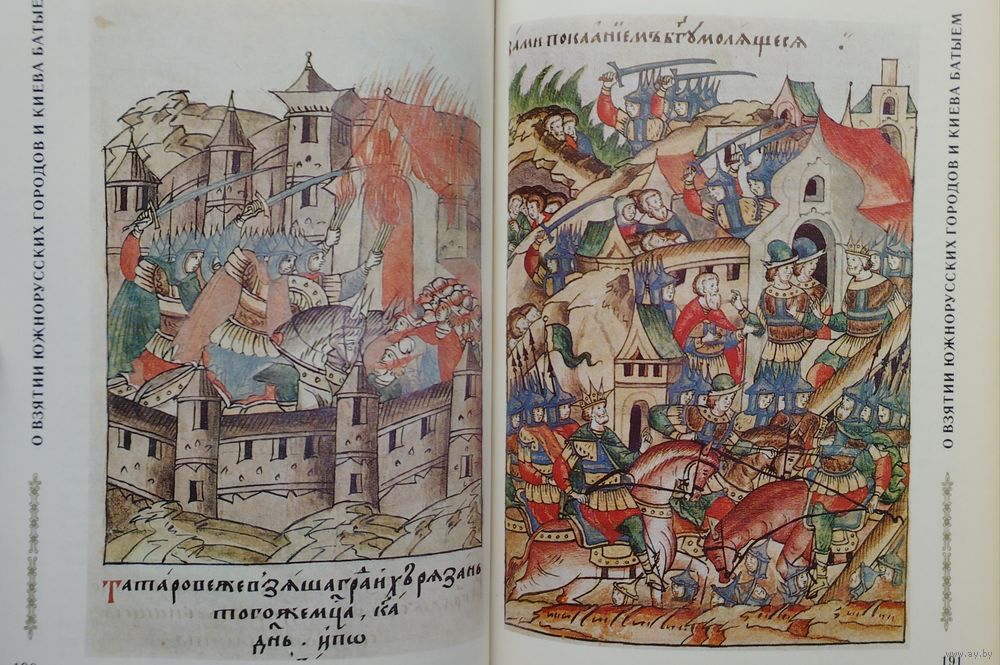 О ВЗЯТИИ ЮЖНОРУССКИХ ГОРОДОВ И КИЕВА БАТЫЕ
татаровежевзѧшаградихърѧзань
тогожемц҃а, к҃а
дн҃ь. ипѡ
ꙗми поклѧнїемъ бг҃у молѧщесѧ
О ВЗЯТИИ ЮЖНОРУССКИХ ГОРОДОВ И КИЕВА БАТЫЕМ
191
www.ay.by